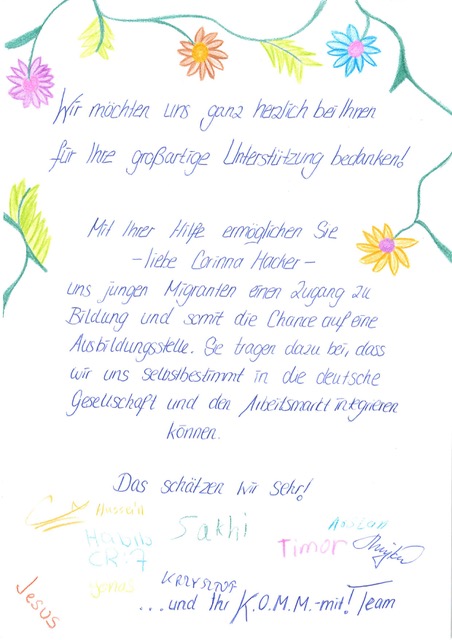 Wir möchten uns ganz herzlich bei Ihnen
für Ihre großartige Unterstützung bedanken!
Mit Ihrer Hilfe ermöglichen Sie
- liebe Corinna Hacker -
uns jungen Migranten einen Zugang zu
Bildung und somit die Chance auf eine
Ausbildungsstelle. Sie tragen dazu bei, dass
wir uns selbstbestimmt in die deutsche
Gesellschaft und den Arbeitsmarkt integrieren
können.
Das schätzen wir sehr!
Hussain
Habib
CR:7
Sakhi
Timor
Jesus
KRZYSZTOF
...und Ihr K.O.M.M.-mit! Team